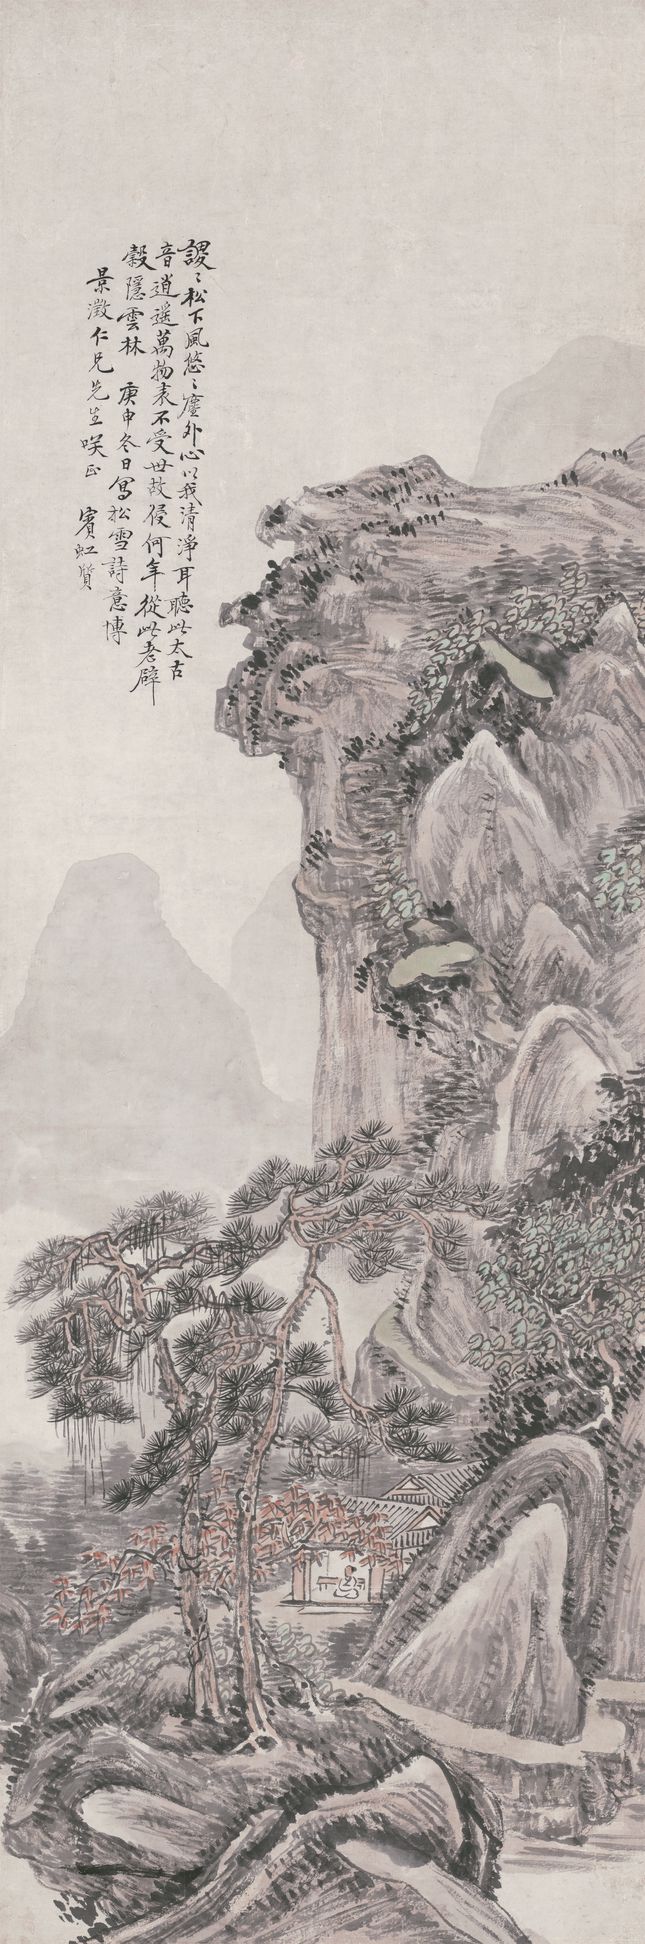 謖〻松下風悠〻塵外心以我清淨耳聽此太古
音逍遥萬物表不受世故侵何年從此老辟
穀隱雲林 庚申冬日寫松雪詩意博
景澂仁兄先生咲正 賓虹質